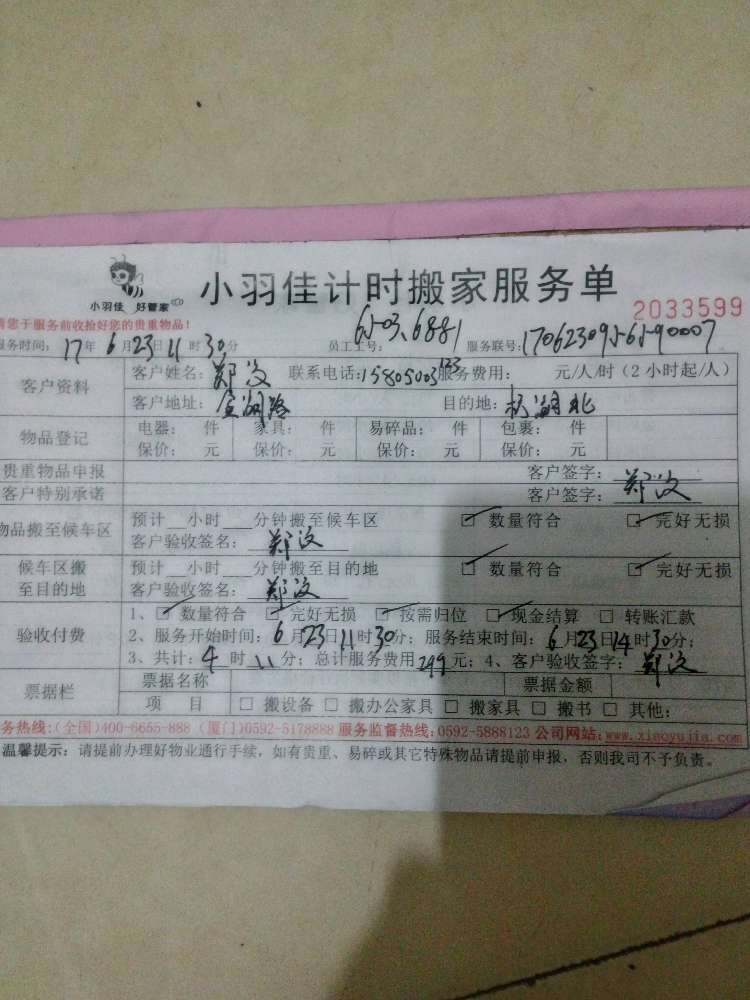 小羽佳 好管家
小羽佳计时搬家服务单
2033599
请您于服务前收捡好您的贵重物品!
服务时间: 17年6月23日11时30分 员工工号: 6503.6881 服务联号:
客户资料 客户姓名: 郑汶 联系电话: 15805003123 服务费用: 元/人/时(2小时起/人)
客户地址: 目的地:
物品登记 电器: 件 家具: 件 易碎品: 件 包裹: 件
保价: 元 保价: 元 保价: 元 保价: 元
贵重物品申报 客户签字:
客户特别承诺 客户签字: 郑汶
物品搬至候车区 预计__小时___分钟搬至候车区 ☑ 数量符合 ☑ 完好无损
客户验收签名: 郑汶
候车区搬至目的地 预计__小时___分钟搬至目的地 ☑ 数量符合 ☑ 完好无损
客户验收签名: 郑汶
验收付费 1、☑ 数量符合 ☑ 完好无损 ☑ 按需归位 ☑ 现金结算 □ 转账汇款
2、服务开始时间: 6月23日11时30分; 服务结束时间: 6月23日14时30分;
3、共计: 4时\\分; 总计服务费用299元; 4、客户验收签字: 郑汶
票据栏 票据名称 票据金额
项 目 □ 搬设备 □ 搬办公家具 □ 搬家具 □ 搬书 □ 其他:
务热线:(全国)400-6655-888 (厦门)0592-5178888 服务监督热线:0592-5888123 公司网站:www.xiaoyujia.com
温馨提示: 请提前办理好物业通行手续, 如有贵重、易碎或其它特殊物品请提前申报, 否则我司不予负责。